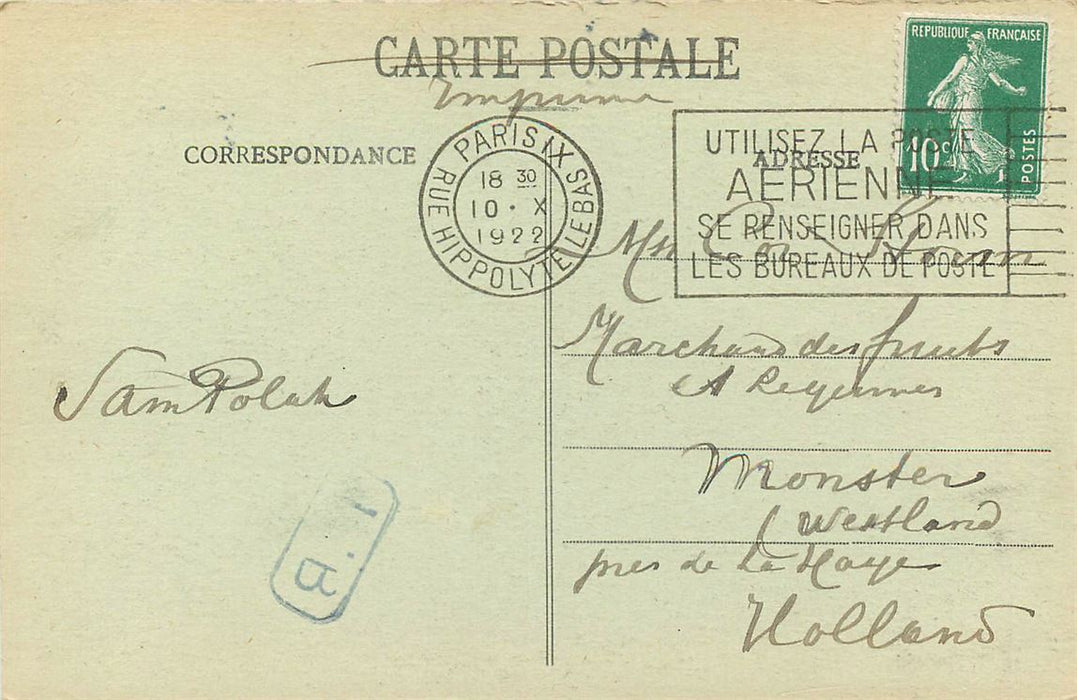 CARTE POSTALE
Imprimé
CORRESPONDANCE
ADRESSE
REPUBLIQUE FRANÇAISE
10c
POSTES
PARIS IX
RUE HIPPOLYTE LEBAS
18 30
10 · X
1922
UTILISEZ LA POSTE
AERIENNE
SE RENSEIGNER DANS
LES BUREAUX DE POSTE
Marchand des fruits
Monster
(Westland
près de La Haye
Holland
Sam Polak
a. 1